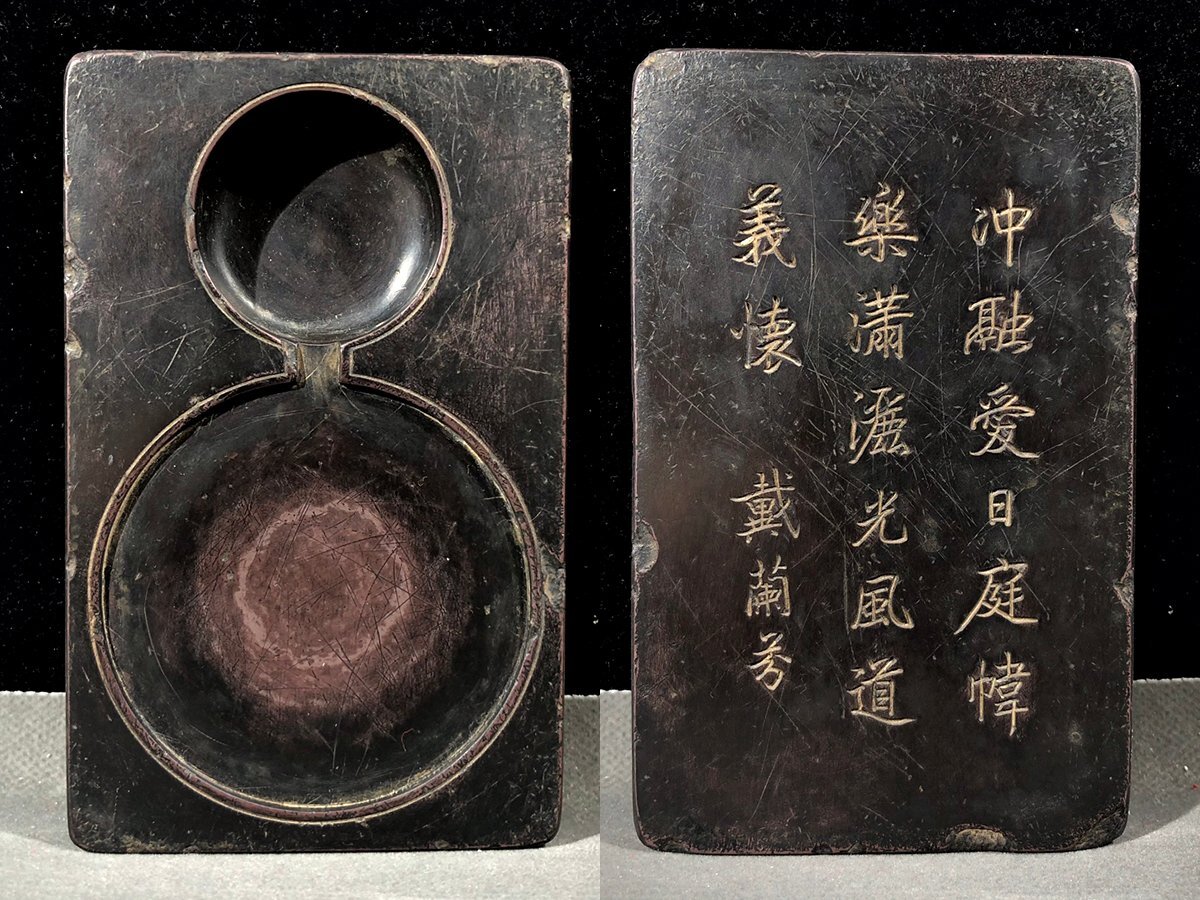 沖融愛日庭幃
樂瀟灑光風道
義懷 戴蘭芬